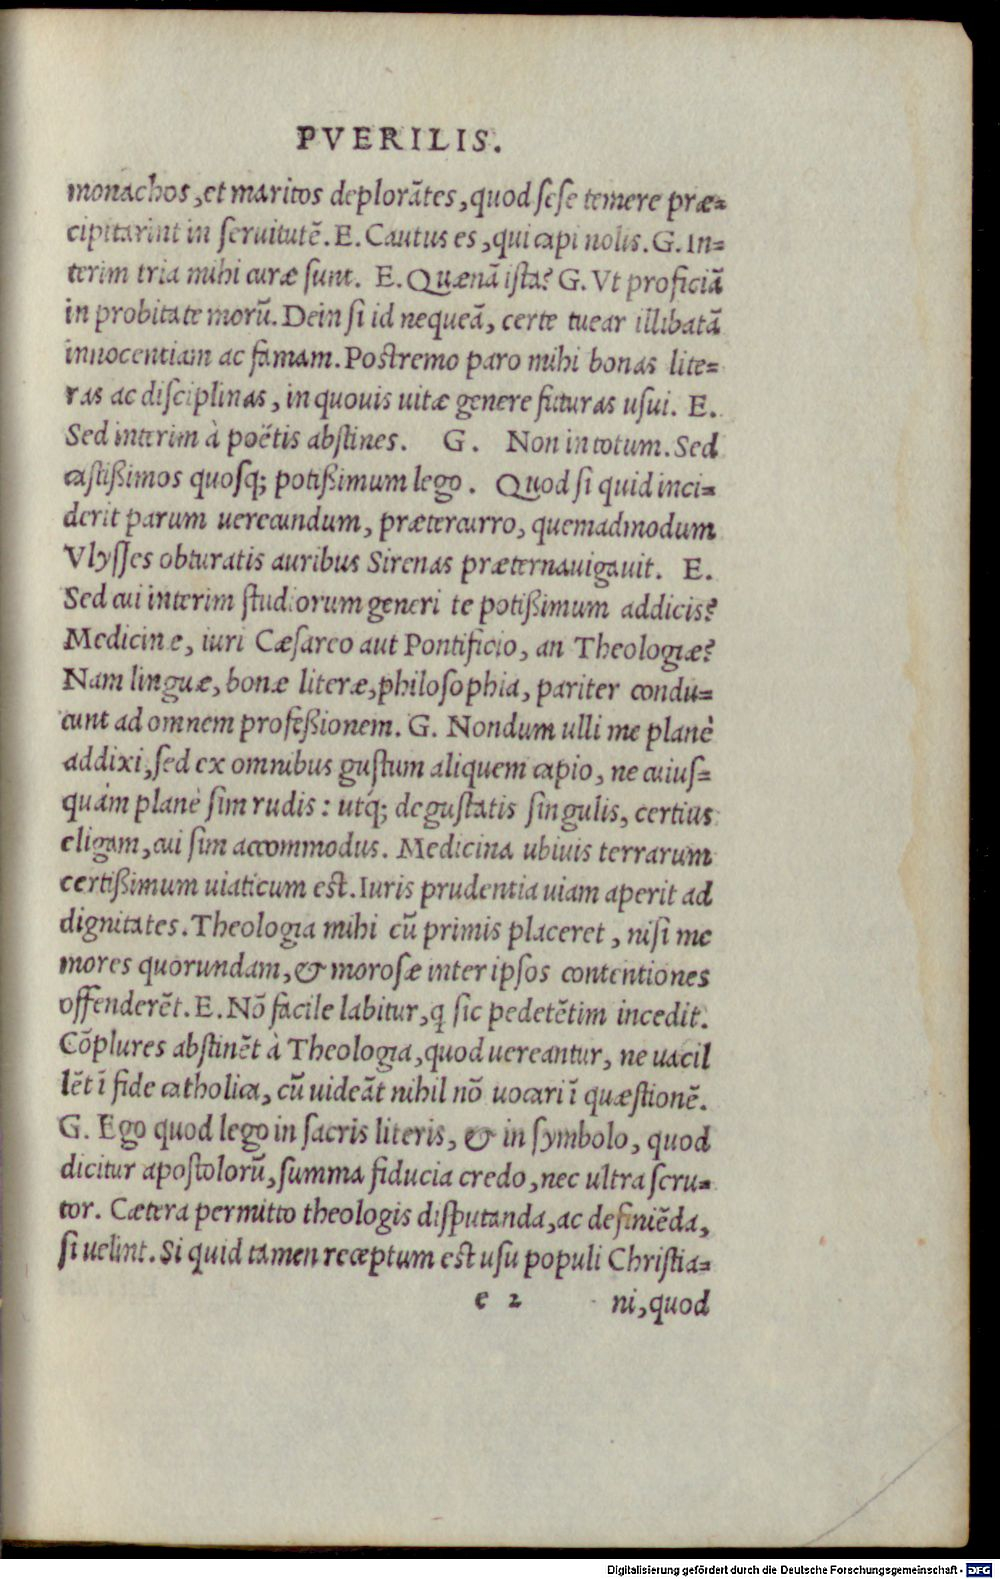 PVERILIS.
monachos, et maritos deplorātes, quod sese temere præ=
cipitarint in seruitutē. E. Cautus es, qui capi nolis. G. In=
terim tria mihi curæ sunt. E. Quænā ista? G. Vt proficiā
in probitate morū. Dein si id nequeā, certe tuear illibatā
innocentiam ac famam. Postremo paro mihi bonas lite=
ras ac disciplinas, in quouis uitæ genere futuras usui. E.
Sed interim à poëtis abstines. G. Non in totum. Sed
castißimos quosq; potißimum lego. Quod si quid inci=
derit parum uerecundum, prætercurro, quemadmodum
Vlysses obturatis auribus Sirenas præternauigauit. E.
Sed cui interim studiorum generi te potißimum addicis?
Medicinæ, iuri Cæsareo aut Pontificio, an Theologiæ?
Nam linguæ, bonæ literæ, philosophia, pariter condu=
cunt ad omnem profeßionem. G. Nondum ulli me planè
addixi, sed ex omnibus gustum aliquem capio, ne cuius=
quàm planè sim rudis: utq́; degustatis singulis, certius
eligam, cui sim accommodus. Medicina ubiuis terrarum
certißimum uiaticum est. Iuris prudentia uiam aperit ad
dignitates. Theologia mihi cū primis placeret, nisi me
mores quorundam, & morosæ inter ipsos contentiones
offenderēt. E. Nō facile labitur, q sic pedetētim incedit.
Cōplures abstinēt à Theologia, quod uereantur, ne uacil
lēt ī fide catholica, cū uideāt nihil nō uocari ī quæstionē.
G. Ego quod lego in sacris literis, & in symbolo, quod
dicitur apostolorū, summa fiducia credo, nec ultra scru=
tor. Cætera permitto theologis disputanda, ac definiēda,
si uelint. Si quid tamen receptum est usu populi Christia=
e 2 ni, quod
Digitalisierung gefördert durch die Deutsche Forschungsgemeinschaft - DFG